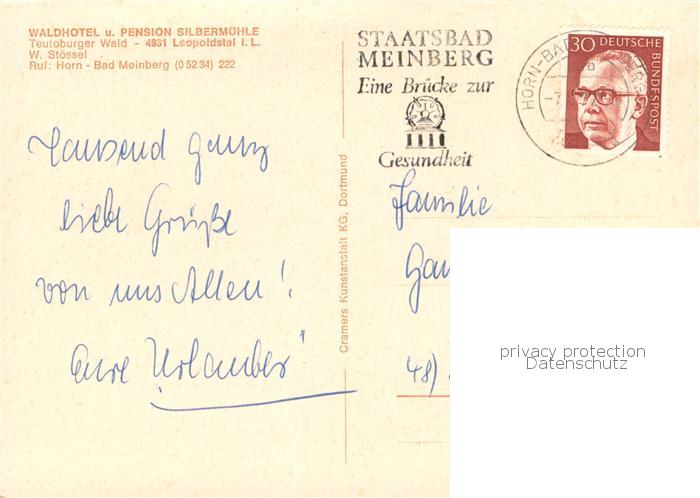 WALDHOTEL u. PENSION SILBERMÜHLE
Teutoburger Wald - 4931 Leopoldstal i. L.
W. Stössel
Ruf: Horn - Bad Meinberg (0 52 34) 222
STAATSBAD
MEINBERG
Eine Brücke zur
Gesundheit
HORN-BAD
30 DEUTSCHE
BUNDESPOST
Tausend ganz
liebe Grüße
von uns Allen!
Eure Urlauber"
Cramers Kunstanstalt KG, Dortmund
Familie
privacy protection
Datenschutz